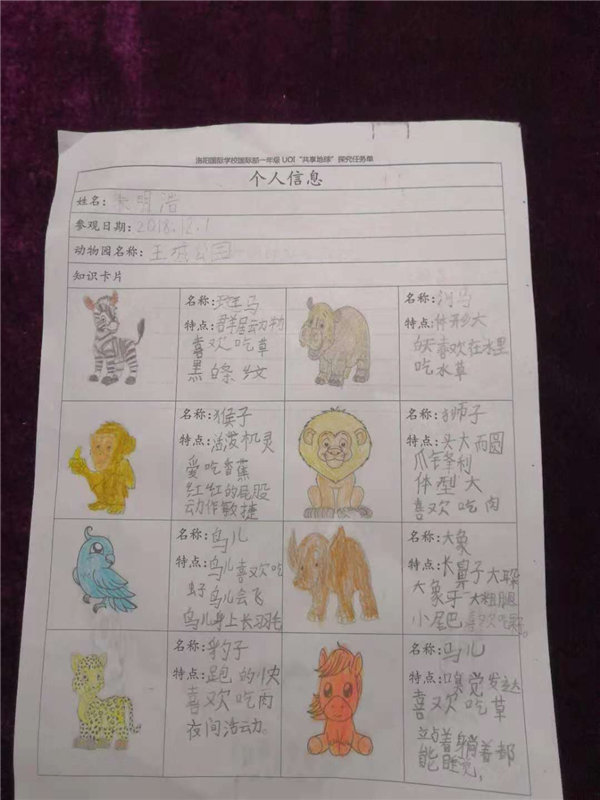 洛阳国际学校国际部一年级 UOI “共享地球” 探究任务单
个人信息
姓名:
参观日期:2018.12.1
动物园名称:王城公园
知识卡片
名称:斑马
特点:群居动物
喜欢吃草
黑白条纹
名称:河马
特点:体形大
白天喜欢在水里
吃水草
名称:猴子
特点:活泼机灵
爱吃香蕉
红红的屁股
动作敏捷
名称:狮子
特点:头大而圆
爪牙锋利
体型大
喜欢吃肉
名称:鸟儿
特点:鸟儿喜欢吃
虫子 鸟儿会飞
鸟儿身上长羽毛
名称:大象
特点:长鼻子 大耳朵
大象牙 大粗腿
小尾巴 喜欢吃
名称:豹子
特点:跑的快
喜欢吃肉
夜间活动。
名称:马儿
特点:嗅觉发达
喜欢吃草
站着躺着都
能睡觉,